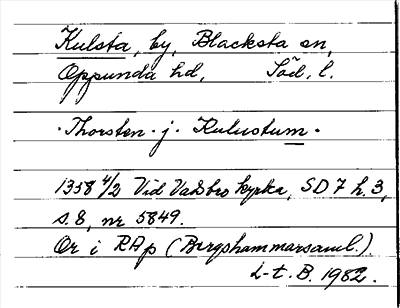 Kulsta, by, Blacksta sn,
Oppunda hd, Söd. l.
· Thorsten · j · Kulustum ·
1358 4/2 Vid Vadsbro kyrka, SD 7 h. 3,
s. 8, nr 5849.
Or i RAp (Bergshammarsaml.)
L-t. B. 1982.